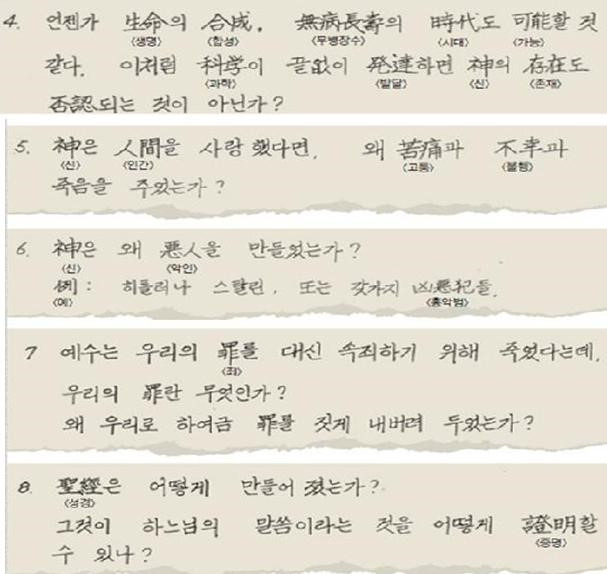 4. 언젠가 生命의 合成, 無病長壽의 時代도 可能할 것
〈생명〉 〈합성〉 〈무병장수〉 〈시대〉 〈가능〉
같다. 이처럼 科学이 끝없이 発達하면 神의 存在도
〈과학〉 〈발달〉 〈신〉 〈존재〉
否認되는 것이 아닌가?
5. 神은 人間을 사랑했다면, 왜 苦痛과 不幸과
〈신〉 〈인간〉 〈고통〉 〈불행〉
죽음을 주었는가?
6. 神은 왜 悪人을 만들었는가?
〈신〉 〈악인〉
例: 히틀러나 스탈린, 또는 갖가지 凶悪犯들.
〈예〉 〈흉악범〉
7 예수는 우리의 罪를 대신 속죄하기 위해 죽었다는데,
〈죄〉
우리의 罪란 무엇인가?
왜 우리로 하여금 罪를 짓게 내버려 두었는가?
8. 聖經은 어떻게 만들어 졌는가?
〈성경〉
그것이 하느님의 말씀이라는 것을 어떻게 證明할
〈증명〉
수 있나?